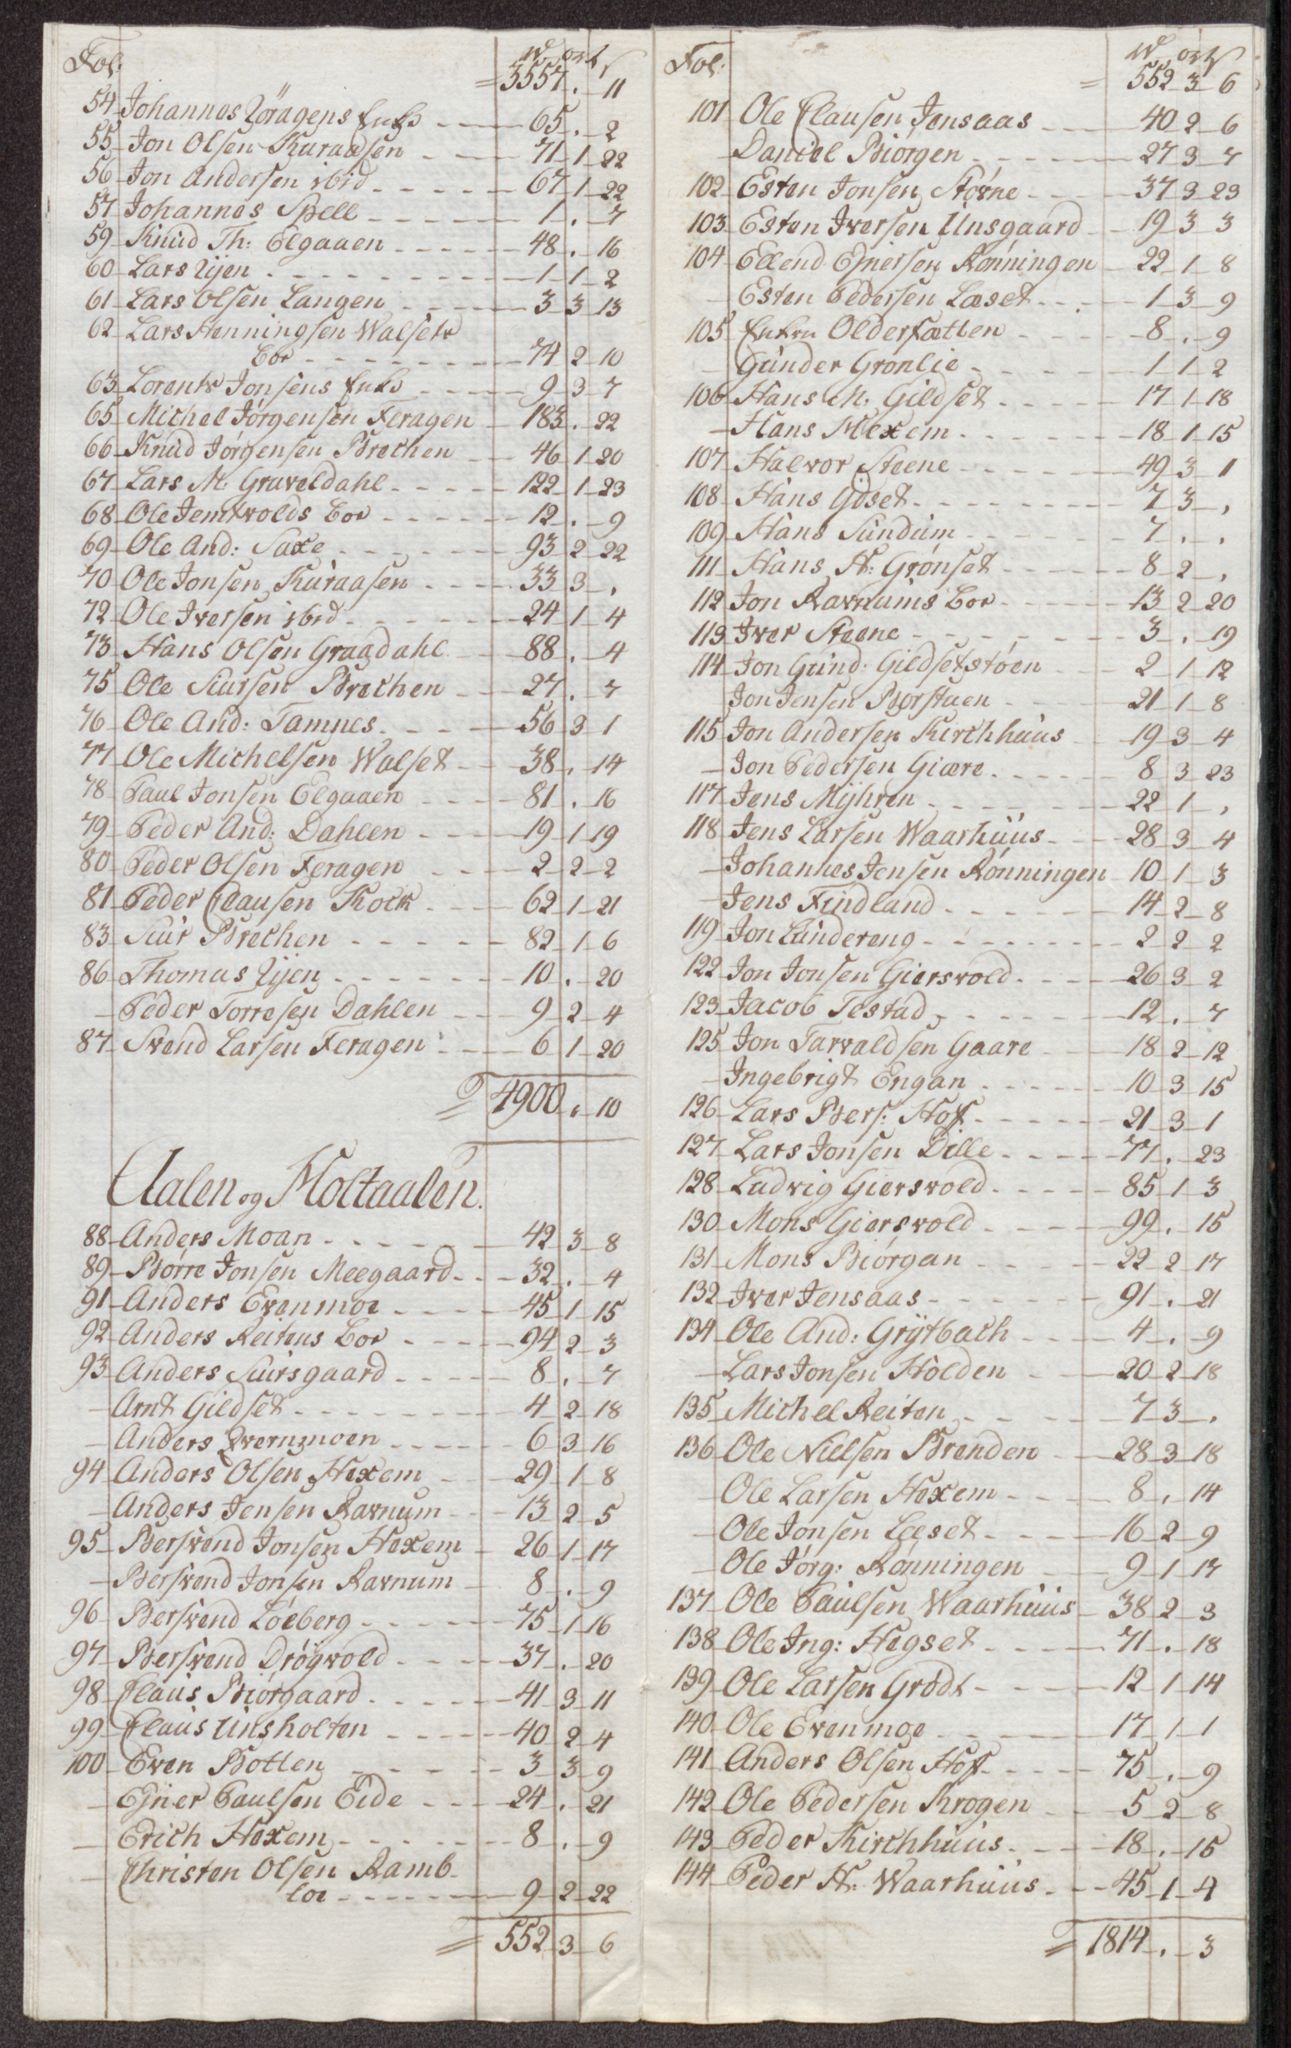 Fol: rd ort ß
= 3557 . 11
54 Johannes Jöragens Enke 65 . 2
55 Jon Olsen Kuraasen 71 1 22
56 Jon Andersen ibid 67 1 22
57 Johannes Spell 1 . 7
59 Knud Th: Elgaaen 48 . 16
60 Lars Uÿen 1 1 2
61 Lars Olsen Langen 3 3 13
62 Lars Henningsen Walsets
Boe 74 2 10
63 Lorents Jonsens Enke 9 3 7
65 Michel Jørgensen Feragen 183 . 22
66 Knud Jørgensen Brechen 46 1 20
67 Lars M. Graveldahl 122 1 23
68 Ole Jemtvolds Boe 12 . 9
69 Ole And: Saxe 93 2 22
70 Ole Jonsen Kuraasen 33 3 .
72 Ole Iversen ibid 24 1 4
73 Hans Olsen Graadahl 88 . 4
75 Ole Siursen Brechen 27 . 7
76 Ole And: Tamnes 56 3 1
77 Ole Michelsen Walset 38 . 14
78 Paul Jonsen Elgaaen 81 . 16
79 Peder And: Dahlen 19 1 19
80 Peder Olsen Feragen 2 2 2
81 Peder Clausen Kock 62 1 21
83 Siur Brechen 82 1 6
86 Thomas Uÿen 10 . 20
– Peder Torresen Dahlen 9 2 4
87 Svend Larsen Feragen 6 1 20
= 4900 . 10
Aalen og Holtaalen.
88 Anders Moan 42 3 8
89 Børre Jonsen Meegaard 32 . 4
91 Anders Evenmoe 45 1 15
92 Anders Reitens Boe 94 2 3
93 Anders Siursgaard 8 . 7
– Arnt Gildset 4 2 18
– Anders Qvernmoen 6 3 16
94 Anders Olsen Hexem 29 1 8
– Anders Jensen Ravnum 13 2 5
95 Bersvend Jonsen Hexem 26 1 17
– Bersvend Jonsen Ravnum 8 . 9
96 Bersvend Løeberg 75 1 16
97 Bersvend Drøgvold 37 . 20
98 Claus Biørgaard 41 3 11
99 Claus Unsholten 40 2 4
100 Even Botten 3 3 9
– Ejner Paulsen Eide 24 . 21
– Erich Hexem 8 . 9
– Christen Olsen Ramb
loe 9 2 22
= 552 3 6
Fol: rd ort ß
= 552 3 6
101 Ole Clausen Jensaas 40 2 6
– Daniel Biørgen 27 3 7
102 Esten Jonsen Steene 37 3 23
103 Esten Iversen Unsgaard 19 3 3
104 Ellend Ejnersen Rønningen 22 1 8
– Esten Pedersen Læset 1 3 9
105 Enken Oldersletten 8 . 9
– Gunder Grønlie 1 1 2
106 Hans M. Gildset 17 1 18
– Hans Hexem 18 1 15
107 Halvor Steene 49 3 1
108 Hans Gaset 7 3 .
109 Hans Sundum 7 . .
111 Hans H: Grønset 8 2 .
112 Jon Ravnums Boe 13 2 20
113 Iver Steene 3 . 19
114 Jon Gund: Gildsetstøen 2 1 12
Jon Jensen Borstuen 21 1 8
115 Jon Andersen Kirchhuus 19 3 4
– Jon Pedersen Giære 8 3 23
117 Jens Mÿhren 22 1 .
118 Jens Larsen Waarhuus 28 3 4
– Johannes Jensen Rønningen 10 1 3
– Jens Findland 14 2 8
119 Jon Lundereng 2 2 2
122 Jon Jonsen Giersvold 26 3 2
123 Jacob Testad 12 . 7
125 Jon Tarvaldsen Gaare 18 2 12
– Ingebrigt Engan 10 3 15
126 Lars Bers: Hof 21 3 1
127 Lars Jonsen Dille 77 . 23
128 Ludvig Giersvold 85 1 3
130 Mons Giersvold 99 . 15
131 Mons Biørgan 22 2 17
132 Iver Jensaas 91 . 21
134 Ole And: Grÿtbach 4 . 9
– Lars Jonsen Holden 20 2 18
135 Michel Reiten 7 3 .
136 Ole Nielsen Brenden 28 3 18
– Ole Larsen Hexem 8 . 14
– Ole Jonsen Læset 16 2 9
– Ole Jörg: Rønningen 9 1 17
137 Ole Paulsen Waarhuus 38 2 3
138 Ole Ing: Hegset 71 . 18
139 Ole Larsen Grødt 12 1 14
140 Ole Evenmoe 17 1 1
141 Anders Olsen Hof 75 . 9
142 Ole Pedersen Krogen 5 2 8
143 Peder Kirchhuus 18 . 15
144 Peder H: Waarhuus 45 1 4
= 1814 . 3